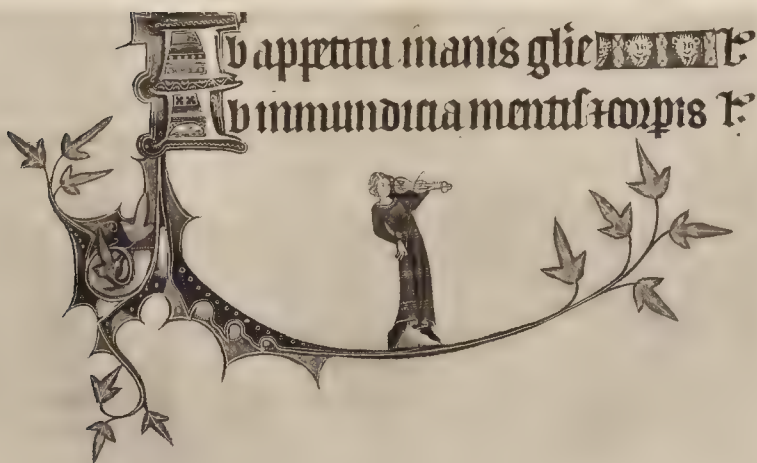 Ab appetitu inanis glie l
Ab inmundicia mentis ⁊ corpis l